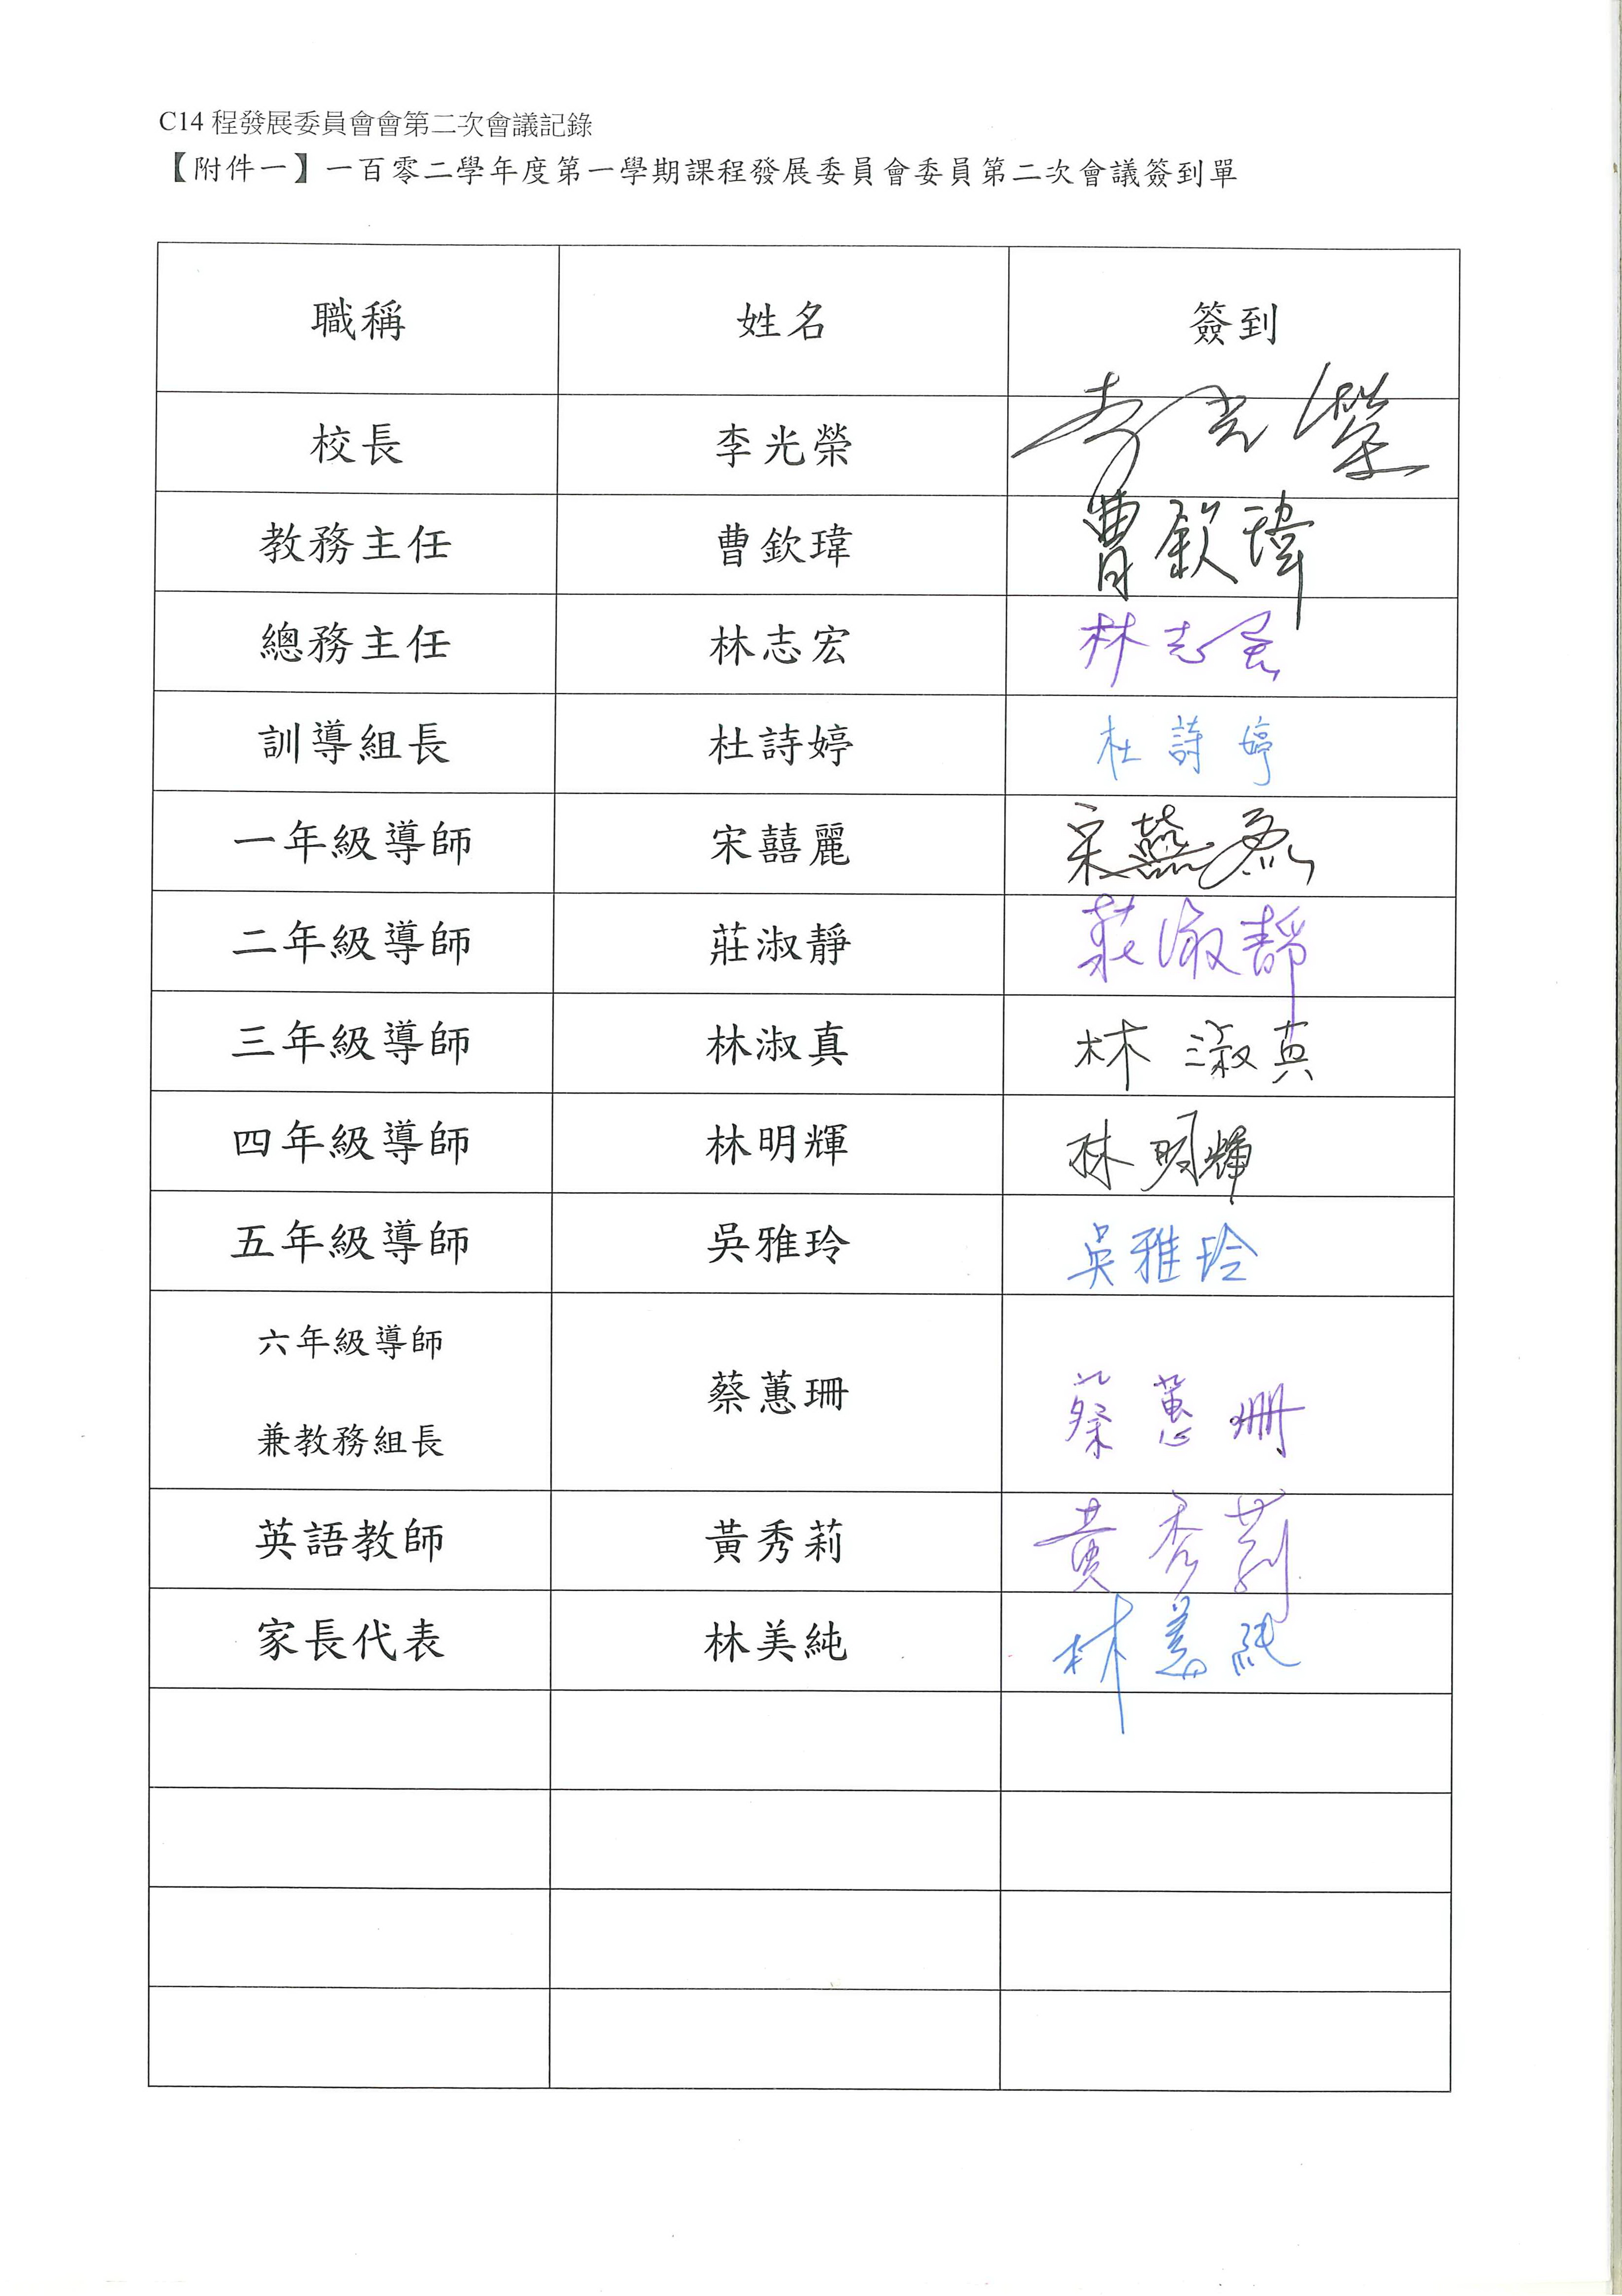 C14 程發展委員會會第二次會議記錄
【附件一】一百零二學年度第一學期課程發展委員會委員第二次會議簽到單
職稱 姓名 簽到
校長 李光榮 李光榮
教務主任 曹欽瑋 曹欽瑋
總務主任 林志宏 林志宏
訓導組長 杜詩婷 杜詩婷
一年級導師 宋囍麗 宋囍麗
二年級導師 莊淑靜 莊淑靜
三年級導師 林淑真 林淑真
四年級導師 林明輝 林明輝
五年級導師 吳雅玲 吳雅玲
六年級導師
兼教務組長 蔡蕙珊 蔡蕙珊
英語教師 黃秀莉 黃秀莉
家長代表 林美純 林美純